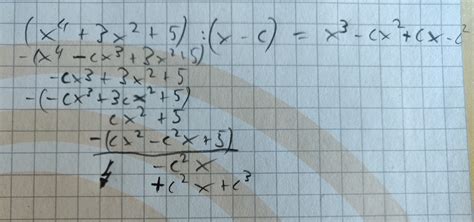 (x⁴ + 3x² + 5) : (x - c) = x³ - cx² + cx - c²
-(x⁴ - cx³ + 3x² + 5)
-cx³ + 3x² + 5
-(-cx³ + 3cx² + 5)
cx² + 5
-(cx² - c²x + 5)
- c²x
+c²x + c³